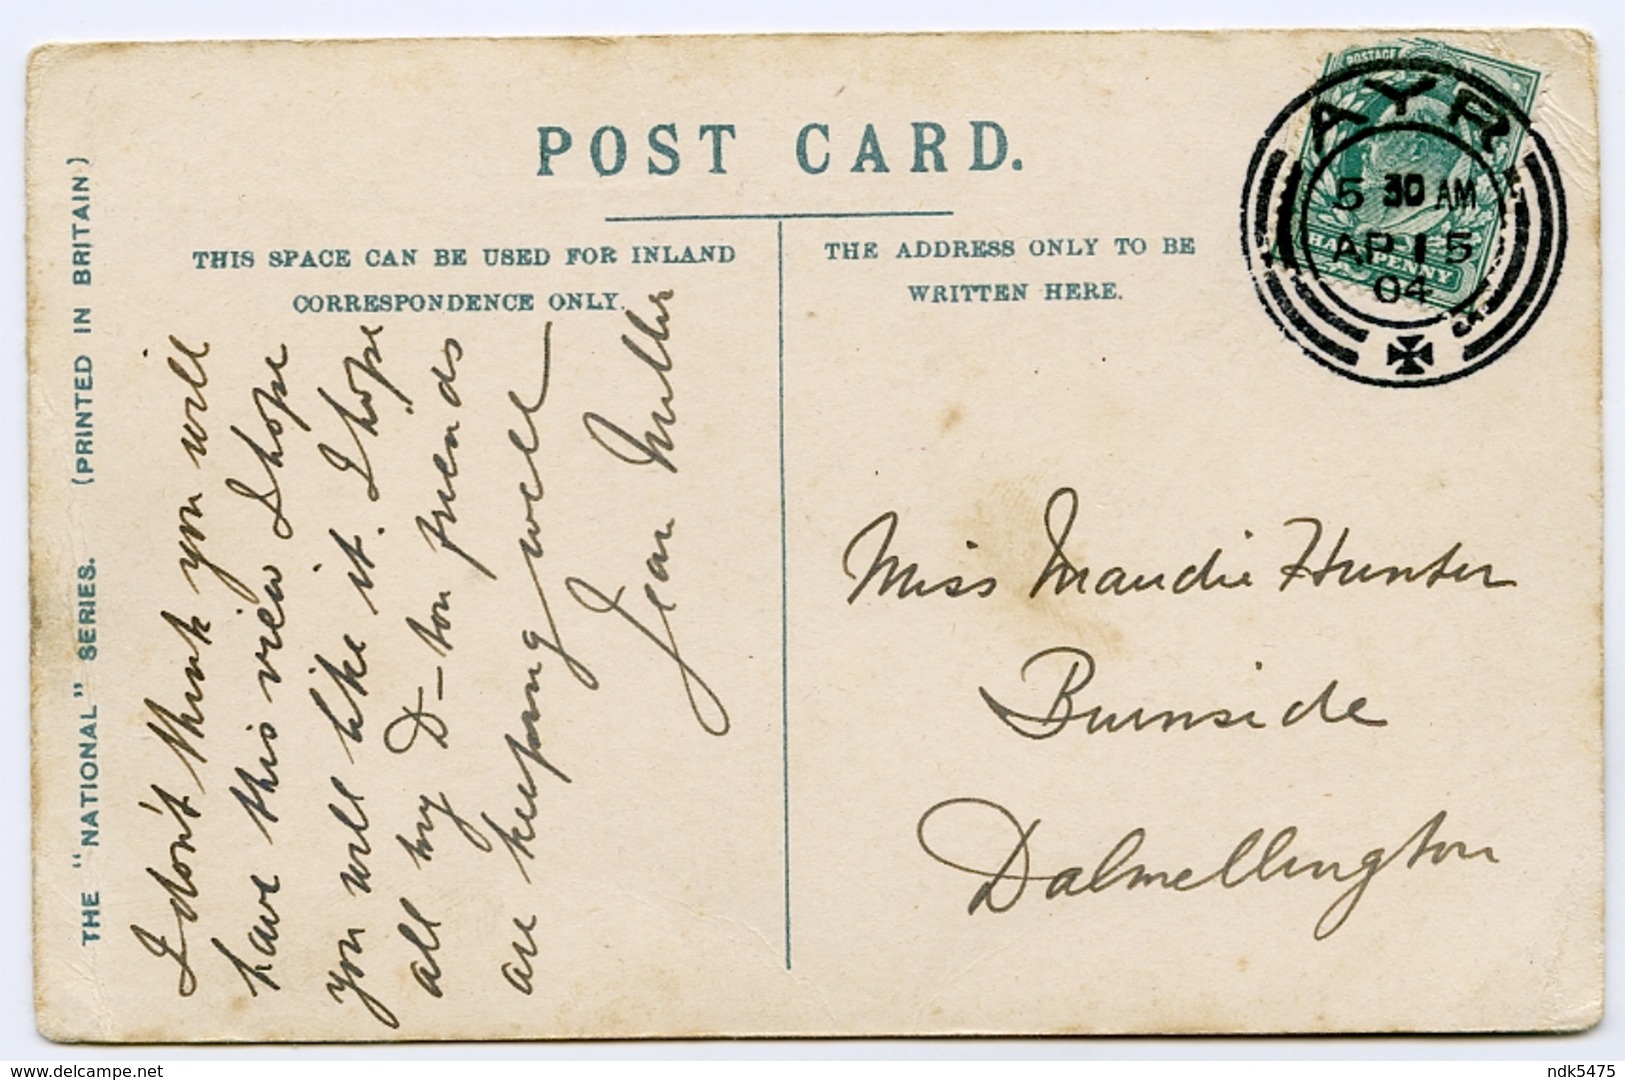 POST CARD.
THIS SPACE CAN BE USED FOR INLAND
CORRESPONDENCE ONLY.
THE ADDRESS ONLY TO BE
WRITTEN HERE.
THE "NATIONAL" SERIES. (PRINTED IN BRITAIN)
I don't think you will
have this view I hope
you will like it. I hope
all my D-ton friends
are keeping well
Jean Miller
Miss Maudie Hunter
Burnside
Dalmellington
POSTAGE
HALFPENNY
AYR
5 30 AM
AP 15
04
delcampe.net
ndk5475